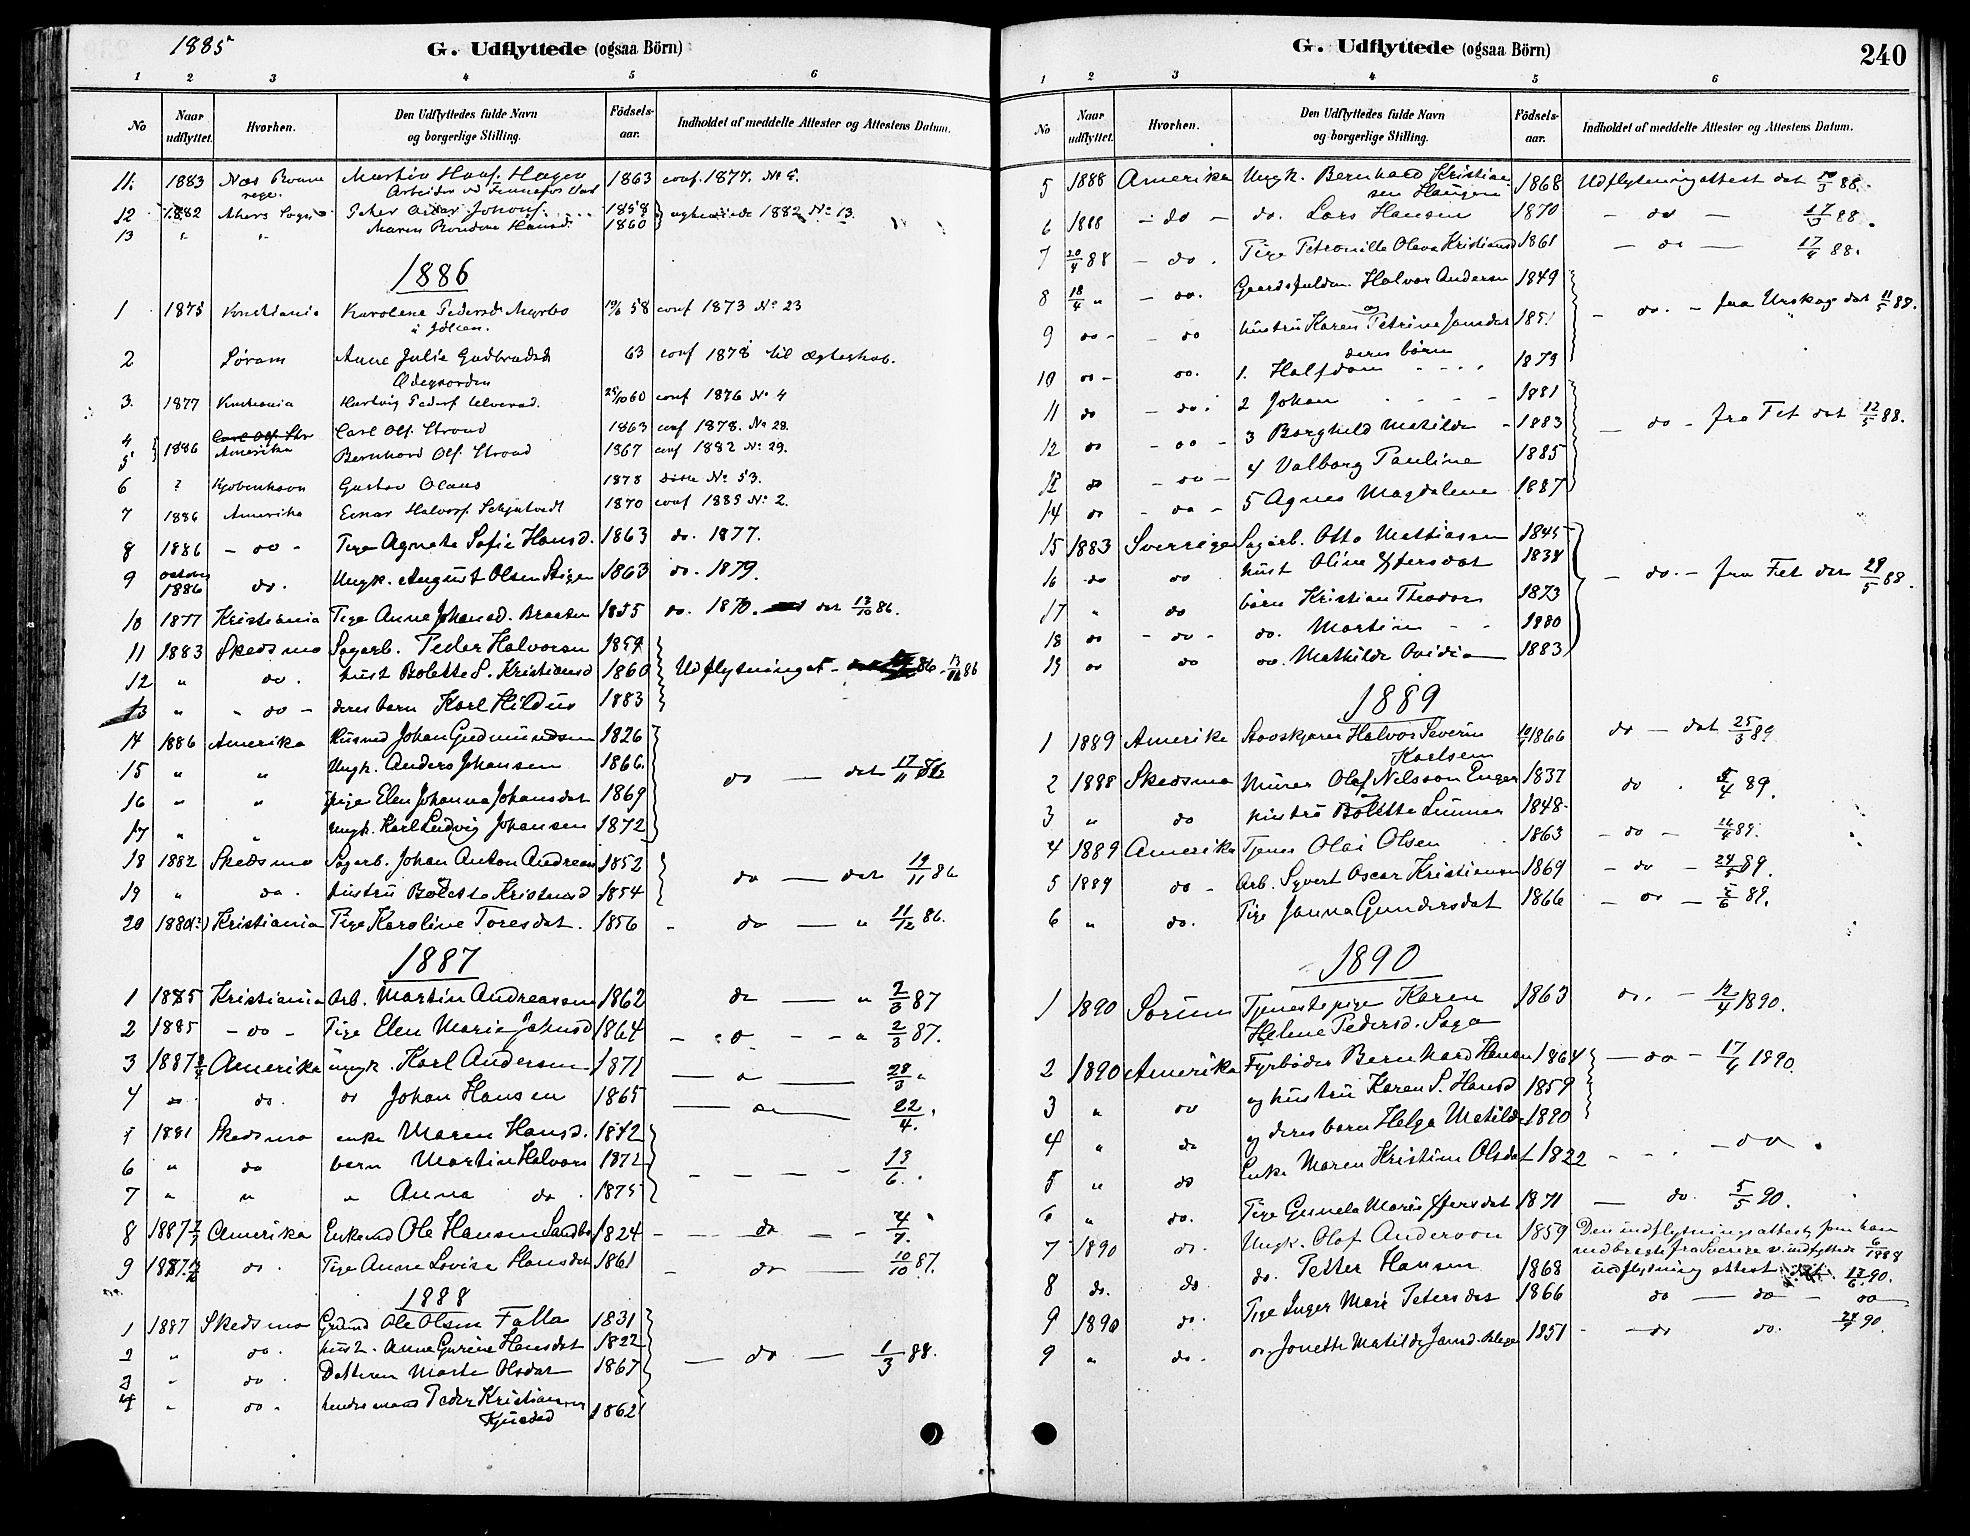 1885
G. Udflyttede (ogsaa Börn)
1 2 3 4 5 6
No Naar udflyttet. Hvorhen. Den Udflyttedes fulde Navn og borgerlige Stilling. Födsels-aar. Indholdet af meddelte Attester og Attestens Datum.
11. 1883 Næs Martin 1863 conf. 1877. No 5.
Arbeider
12 1882 Akers Sogn Peter Johans. 1858 1882 No 13.
13 " " Maren Hansd. 1860
1886
1 1875 Kristiania Karoline Pedersd. Myrbo 19/6 58 conf 1873 No 23
2 Sørum Anne Julie Gudbrandsd. 63 conf 1878 til Ægteskab.
Ødegaarden
3. 1877 Kristiania Hartvig Peders. 25/10 60 conf 1876 No 4
4 Carl Ols. Strand 1863 conf 1878. No 28.
5 1886 Amerika Bernhard Ols. Strand 1867 conf 1882 No 29.
6 ? Kjøbenhavn Gustav Olaus 1878 ditte No 53.
7 1886 Amerika Einar Halvors. 1870 conf 1885 No 2.
8 1886 - do - Pige Agnete Sofie Hansd. 1863 do. 1877.
9 1886 do. Ungk. August Olsen Stigen 1863 do. 1879.
10 1877 Kristiania Pige Anne Johansd. Braaten 1855 do. 1870. dat 13/10 86.
11 1883 Skedsmo Sagarb. Peder Halvorsen 1859
12 " do. hust Bolette S. Kristiansd 1860 Udflytningsat - 86
13 " " do - deres barn Karl Hildus 1883
14 1886 Amerika Husmd Johan Gudmundsen 1826
15 " " Ungk. Anders Johansen 1866.
16 " " Pige Elen Johanna Johansdat 1869 do — dat 17/11 86
17 " " Ungk. Karl Ludvig Johansen 1872
18 1882 Skedsmo Sagarb. Johan Anton Andreas 1852
19 " do. hustru Bolette Kristensd 1854 do — dat 19/11 86
20 1880(?) Kristiania Pige Karoline Toresdat. 1856 - do — " 11/12 86.
1887
1 1885 Kristiania Arb. Martin Andreassen 1862 do — " 2/3 87
2 1885 - do - Pige Elen Marie Johnsd 1864 - do - - " 2/3 87.
3 1887 Amerika ungk. Karl Andersen 1871 — " — 28/3 "
4 do do. do Johan Hansen 1865 — do — 22/4.
5 1881 Skedsmo enke Maren Hansd. 1842
6 " do barn Martin Halvors 1872 - - - - 13/6.
7 " " " Anna do 1875
8 1887 Amerika Enkemd Ole Hansen Sandbo 1824 - - do - - 4/7.
9 1887. do. Pige Anne Lovise Hansdat 1861 - do — 10/10 87.
1888
1 1887 Skedsmo Grdmd Ole Olsen Falla 1831
2 " do. hust. Anne Gurine Hansdat 1822
3 " do. Datteren Marte Olsdat 1867 — do — 1/3 88.
4 " do. hendes mand Peder Kristiansen 1862
240
G. Udflyttede (ogsaa Börn)
1 2 3 4 5 6
No Naar udflyttet. Hvorhen. Den Udflyttedes fulde Navn og borgerlige Stilling. Födsels-aar. Indholdet af meddelte Attester og Attestens Datum.
5 1888 Amerika Ungk. Bernhard Kristian- 1868 Udflytningattest dat 88.
sen Haugen
6 1888 - do - do. Lars Hansen 1870 - do — 17/3 88.
7 20/4 88 - do. Pige Petronille Oleva Kristiansd 1861 - do — 17/4 88.
8 18/4 " - do. Gaardsfulden. Halvor Andersen 1849
9 do - - do hustru Karen Petrine Jansdat 1851 - do. - fra Urskog dat 11/5 88.
deres børn
10 do - do. 1. Halfdan 1879
11 do - do. 2 Johan 1881
12 do - do - 3 Borghild Matilde - 1883 — do - fra Fet dat 12/5 88.
13 do - do - 4 Valborg Pauline 1885
14 do - do - 5 Agnes Magdalene 1887
15 1883 Sverrige Sagarb. Otto Mathiassen 1845
16 do do hust Oline Iversdat 1838
17 " do børn Kristian Theodor 1873 - do. - fra Fet dat 29/5 88.
18 do - do - do. Martin - - 1880
19 do do do. Mathilde Ovidia 1883
1889
1 1889 Amerika Halvor Severin 1866 do — dat 25/3 89.
Karlsen
2 1888 Skedsmo Murer Olof Nilsson Enger 1837 do . /4 89.
3 " do hustru Bolette 1848.
4 1889 Amerika Tjener Olai Olsen 1863 - do - 89.
5 1889 do - Arb. Syvert Oscar Kristiansen 1869 - do - 24/5 89.
6 " do. Pige Janna Gundersdat 1866 - do - /6 89.
1890
1 1890 Sorum Tjenestepige Karen 1863 do. - 12/4 1890.
Helene Pedersd. Saga
2 1890 Amerika Fyrbøder Bernhard Hansen 1864 - do - 17/4 1890.
3 " do og hustru Karen S. Hansd 1859
4 " do og deres barn Helga Matilde 1890
5 " do Enke Maren Kristine Olsdat 1822 - - . - do .
6 " do. Pige Gunela Marie Iversdat 1871 — do. 5/5 90.
7 1890 do. Ungk. Olof Anderson 1859 Den indflytningsattest som han
medbragte fra Sverige v. indflyttede 6/ 1888
8 do. do do. Petter Hansen 1868 udflytning attest 17/6 90.
9 1890 do. Pige Inger Marie Petersdat 1866 do — do — do
9 " do. do. Jonette Matilde Jansd. 1851 - - do do. 24/9 90.